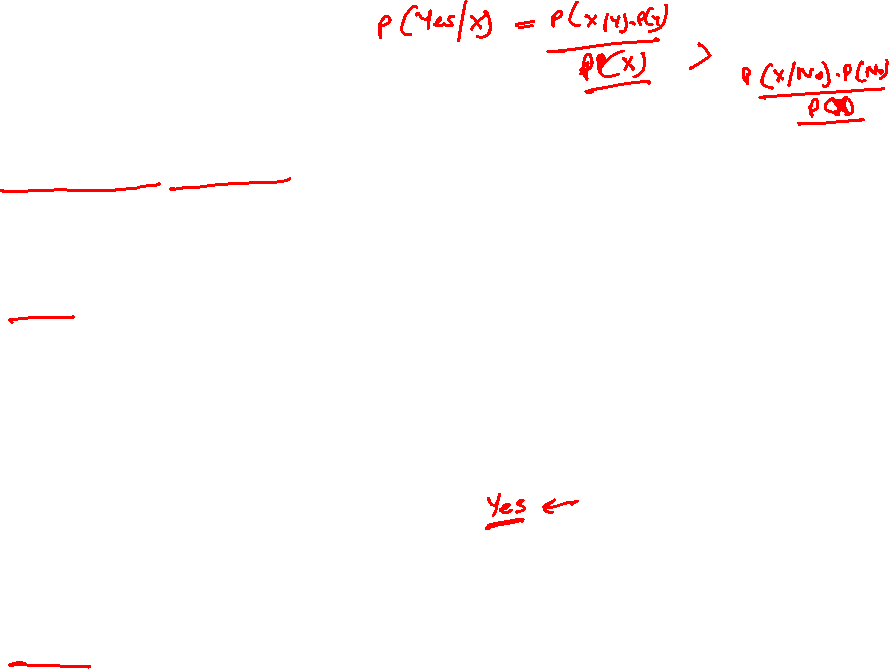 P(Yes/X) = P(X/Y).P(Y) / P(X) >
P(X/No).P(No) / P(X)
Yes ←